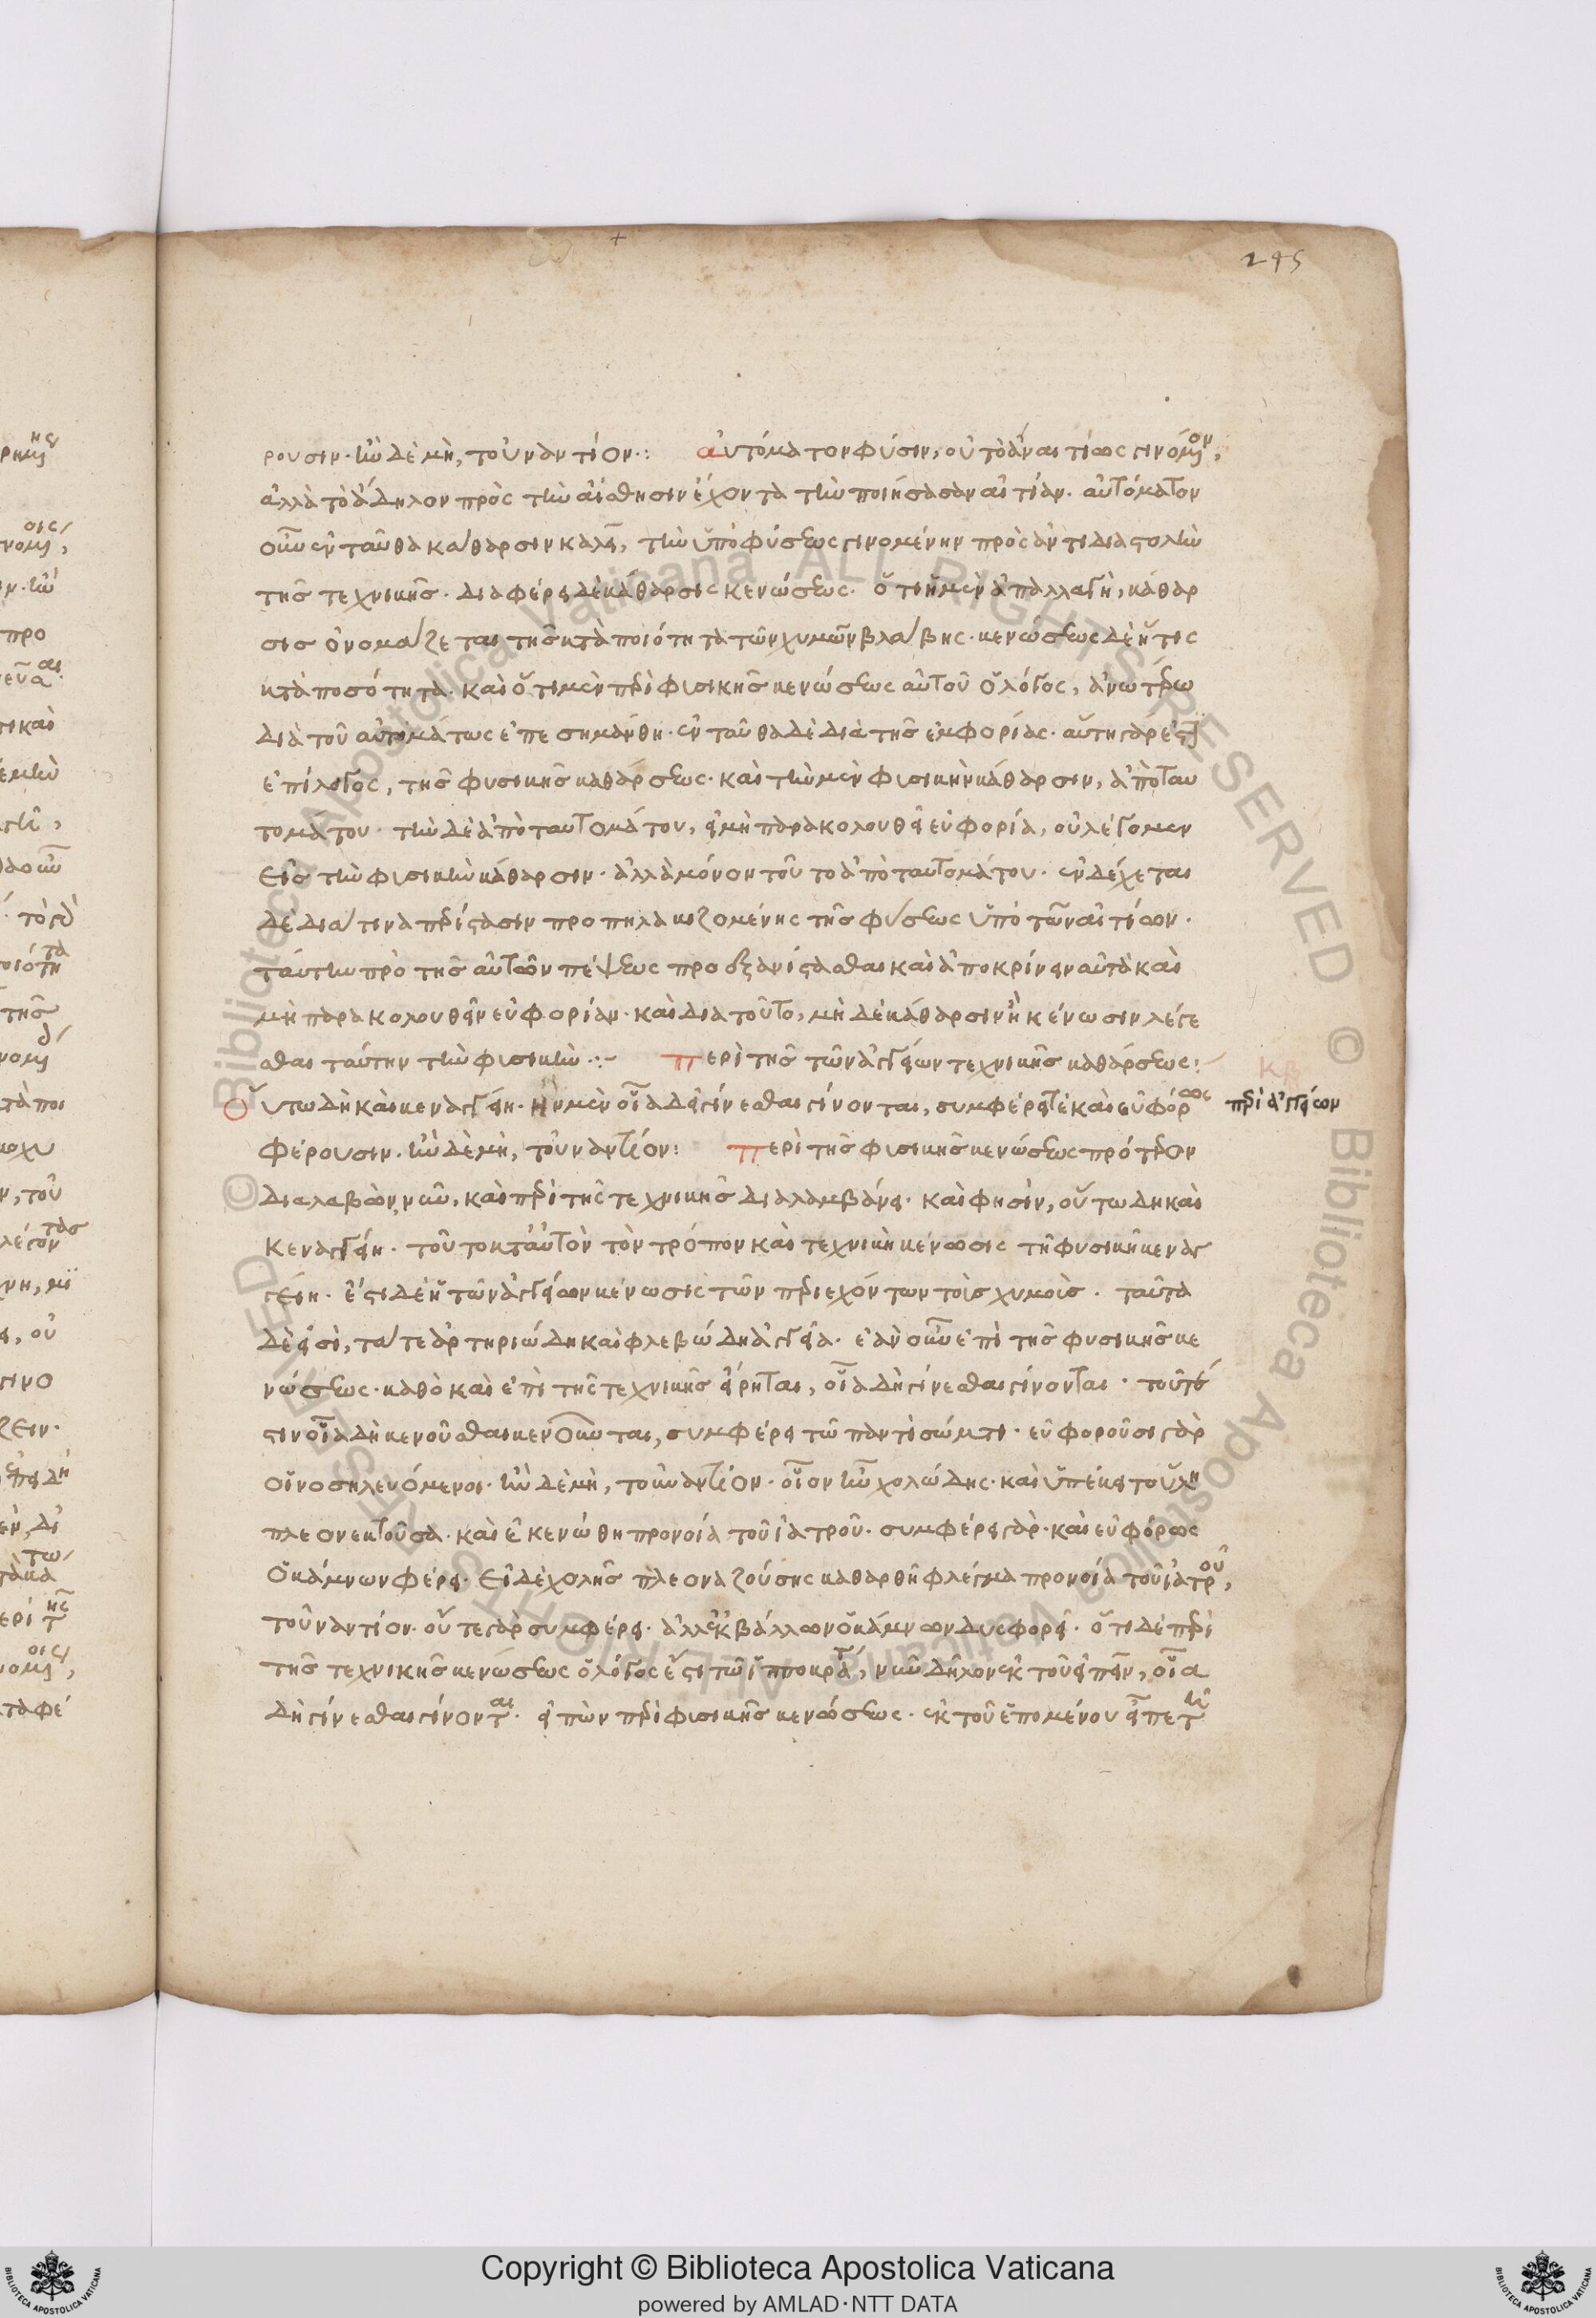 295
ρουσιν· ἢν δὲ μὴ, τοὐναντίον·: αὐτόματον φύσιν, οὐ τὸ ἀναιτίως γινόμενον,
ἀλλὰ τὸ ἄδηλον πρὸς τὴν αἴσθησιν ἔχοντα τὴν ποιήσασαν αἰτίαν· αὐτόματον
οὖν ἐνταῦθα κάθαρσιν καλεῖ, τὴν ὑπὸ φύσεως γινομένην πρὸς ἀντιδιαστολὴν
τῆς τεχνικῆς· διαφέρει δὲ κάθαρσις κενώσεως· ὅτι ἡ μὲν ἀπαλλαγὴ, κάθαρ
σις ὀνομάζεται τῆς κατὰ ποιότητα τῶν χυμῶν βλάβης· κενώσεως δὲ ἥτις
κατὰ ποσότητα· καὶ ὅτι μὲν περὶ φυσικῆς κενώσεως αὐτοῦ ὁ λόγος, ἀνωτέρω
διὰ τοῦ αὐτομάτως ἐπεσημάνθη· ἐνταῦθα δὲ διὰ τῆς εὐφορίας· αὕτη γάρ ἐστιν
ἐπίλογος, τῆς φυσικῆς καθάρσεως· καὶ τὴν μὲν φυσικὴν κάθαρσιν, ἀπὸ ταυ
τομάτου· τὴν δὲ ἀπὸ ταυτομάτου, εἰ μὴ παρακολουθεῖ εὐφορία, οὐ λέγομεν
εἰς τὴν φυσικὴν κάθαρσιν· ἀλλὰ μόνον τοῦτο ἀπὸ ταυτομάτου· ἐνδέχεται
δὲ διά τινα περίστασιν προπηλακιζομένης τῆς φύσεως ὑπὸ τῶν αἰτίων·
ταύτην πρὸ τῆς αὐτῶν πέψεως προεξανίστασθαι καὶ ἀποκρίνειν αὐτὰ καὶ
μὴ παρακολουθεῖν εὐφορίαν· καὶ διὰ τοῦτο, μὴ δὲ κάθαρσιν ἢ κένωσιν λέγε
σθαι ταύτην τὴν φυσικὴν·:- Περὶ τῆς τῶν ἀγγείων τεχνικῆς καθάρσεως:
κβ
περὶ ἀγγείων
Οὕτω δὴ καὶ κεναγγείη· ἢν μὲν οἷα δεῖ γίνεσθαι γίνονται, συμφέρει τὲ καὶ εὐφόρως
φέρουσιν· ἢν δὲ μὴ, τοὐναντίον: Περὶ τῆς φυσικῆς κενώσεως πρότερον
διαλαβὼν, νῦν· καὶ περὶ τῆς τεχνικῆς διαλαμβάνει· καὶ φησὶν, οὕτω δὴ καὶ
κεναγγείη· τοῦτο κατ' αὐτὸν τὸν τρόπον καὶ τεχνικὴ κένωσις τῇ φυσικῇ κεναγ
γείη· ἔστι δὲ ἡ τῶν ἀγγείων κένωσις τῶν περιεχόντων τοῖς χυμοῖς· ταῦτα
δὲ εἰσὶ, τά τε ἀρτηριώδη καὶ φλεβώδη ἀγγεῖα· ἐὰν οὖν ἐπὶ τῆς φυσικῆς κε
νώσεως· καθὸ καὶ ἐπὶ τῆς τεχνικῆς εἴρηται, οἷα δὴ γίνεσθαι γίνονται· τουτέ
στιν οἷα δὴ κενοῦσθαι κενοῦνται, συμφέρει τῷ παντὶ σώματι· εὐφοροῦσι γὰρ
οἱ νοσηλευόμενοι· ἢν δὲ μὴ, τοὐναντίον· οἷον ἦν χολώδης· καὶ ὑπέκειτο ὕλη
πλεονεκτοῦσα· καὶ ἐκενώθη προνοία τοῦ ἰατροῦ· συμφέρει γὰρ· καὶ εὐφόρως
ὁ κάμνων φέρει· εἰ δὲ χολῆς πλεοναζούσης καθαρθῇ φλέγμα προνοία τοῦ ἰατροῦ,
τοὐναντίον· οὔτε γὰρ συμφέρει· ἀλλ' ἐκβάλλων ὁ κάμνων δυσφορεῖ· ὅτι δὲ περὶ
τῆς τεχνικῆς κενώσεως ὁ λόγος ἐστὶ τῷ ἱπποκράτει, νῦν δῆλον ἐκ τοῦ εἰπεῖν, οἷα
δὴ γίνεσθαι γίνονται· εἰπὼν περὶ φυσικῆς κενώσεως· ἐκ τοῦ ἑπομένου εἶπε τὴν
Copyright © Biblioteca Apostolica Vaticana
powered by AMLAD·NTT DATA